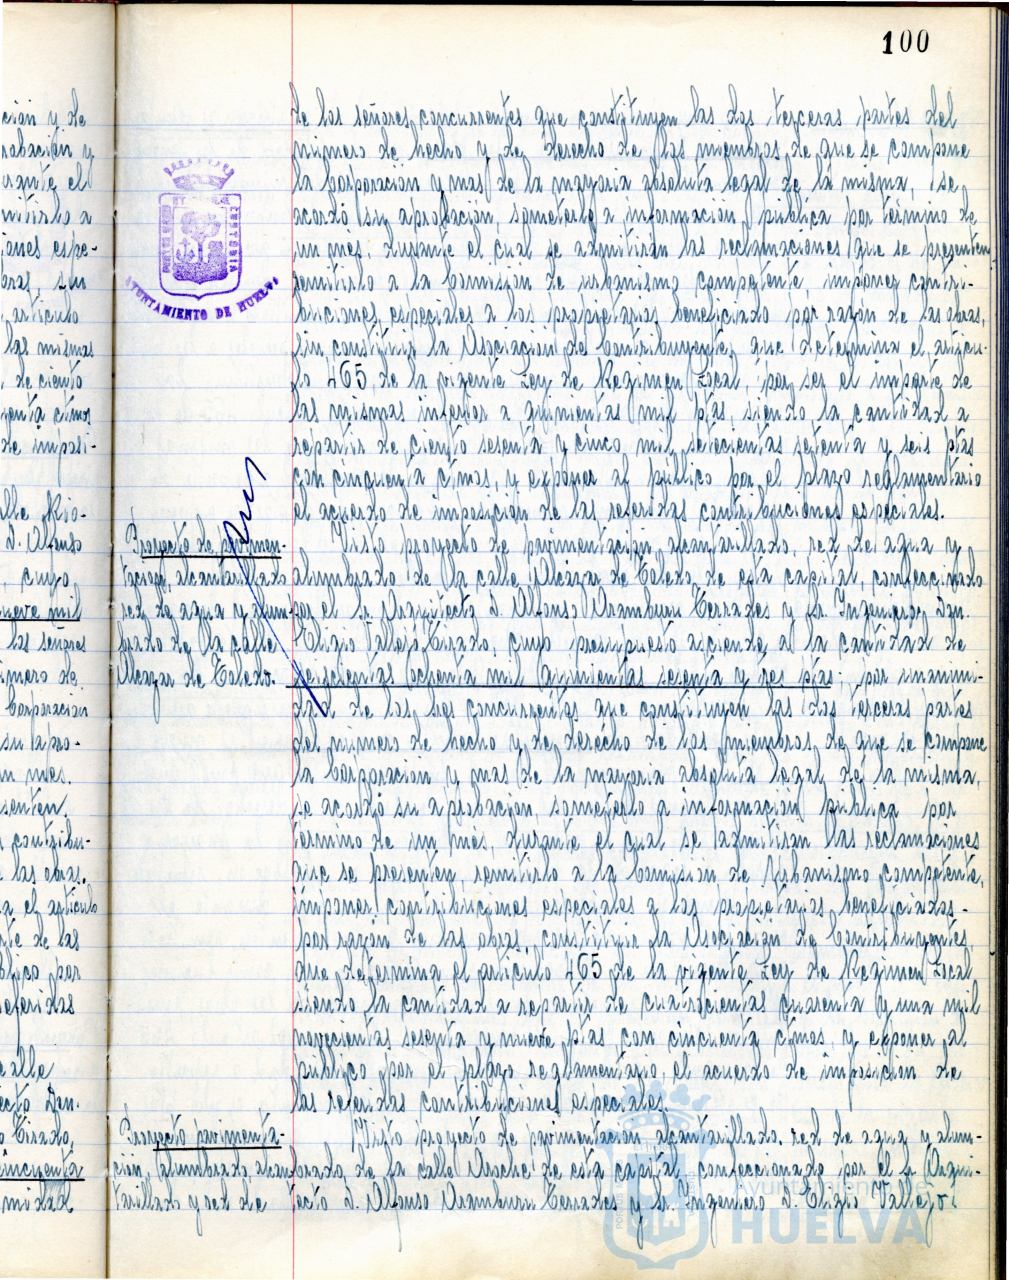 100
ción y de
robación y
urante el
mitirlo a
iones espe-
bras, sin
artículo
las mismas
de ciento
cuenta ctmos
de imposi-
alle Rio-
D. Alfonso
, cuyo
nueve mil
los señores
úmero de
Corporación
su apro-
un mes.
senten.
contribu-
las obras.
a el artículo
rte de las
blico por
referidas
calle
ecto Don.
o Tirado,
cincuenta
imidad
PORTUS MARIS ET TERRE CUSTODIA
AYUNTAMIENTO DE HUELVA
de los señores concurrentes que constituyen las dos terceras partes del
número de hecho y de derecho de los miembros de que se compone
la Corporación y mas de la mayoria absoluta legal de la misma, se
acordó su aprobación, someterlo a información pública por término de
un mes, durante el cual se admitirán las reclamaciones que se presenten
remitirlo a la Comisión de urbanismo competente, imponer contri-
buciones especiales a los propietarios beneficiado por razón de las obras,
sin constituir la Asociación de Contribuyentes que determina el artícu-
lo 465 de la vigente Ley de Regimen Local, por ser el importe de
las mismas inferior a quinientas mil ptas, siendo la cantidad a
repartir de ciento sesenta y cinco mil setecientas setenta y seis ptas
con cincuenta ctmos, y exponer al público por el plazo reglamentario
el acuerdo de imposición de las referidas contribuciones especiales.
Proyecto de pavimen-
tación, alcantarillado
red de agua y alum-
brado de la calle
Alcazar de Toledo.
Visto proyecto de pavimentación, alcantarillado, red de agua y
alumbrado de la calle Alcázar de Toledo de esta capital, confeccionado
por el Sr. Arquitecto D. Alfonso Aramburu Terrades y Sr. Ingeniero Don.
Eligio Vallejo Tirado, cuyo presupuesto asciende a la cantidad de
seiscientas ochenta mil quinientas sesenta y tres ptas, por unanimi-
dad de los sres concurrentes que constituyen las dos terceras partes
del número de hecho y de derecho de los miembros de que se compone
la Corporación y mas de la mayoria absoluta legal de la misma,
se acordó su aprobación, someterlo a información pública por
término de un mes, durante el cual se admitiran las reclamaciones
que se presenten, remitirlo a la Comisión de Urbanismo competente,
imponer contribuciones especiales a los propietarios beneficiados.
por razón de las obras, constituir la Asociación de Contribuyentes,
que determina el artículo 465 de la vigente Ley de Regimen Local
siendo la cantidad a repartir de cuatrocientas cuarenta y una mil
novecientas sesenta y nueve ptas, con cincuenta ctmos, y exponer al
público por el plazo reglamentario, el acuerdo de imposición de
las referidas contribuciones especiales.
Proyecto pavimenta-
ción, alumbrado alcan-
tarillado y red de
Visto proyecto de pavimentación alcantarillado, red de agua y alum-
brado de la calle Aroche de esta capital confeccionado por el Sr Arqui-
tecto D. Alfonso Aramburu Terrades y Sr. Ingeniero D. Eligio Vallejo.
Ayuntamiento de
HUELVA